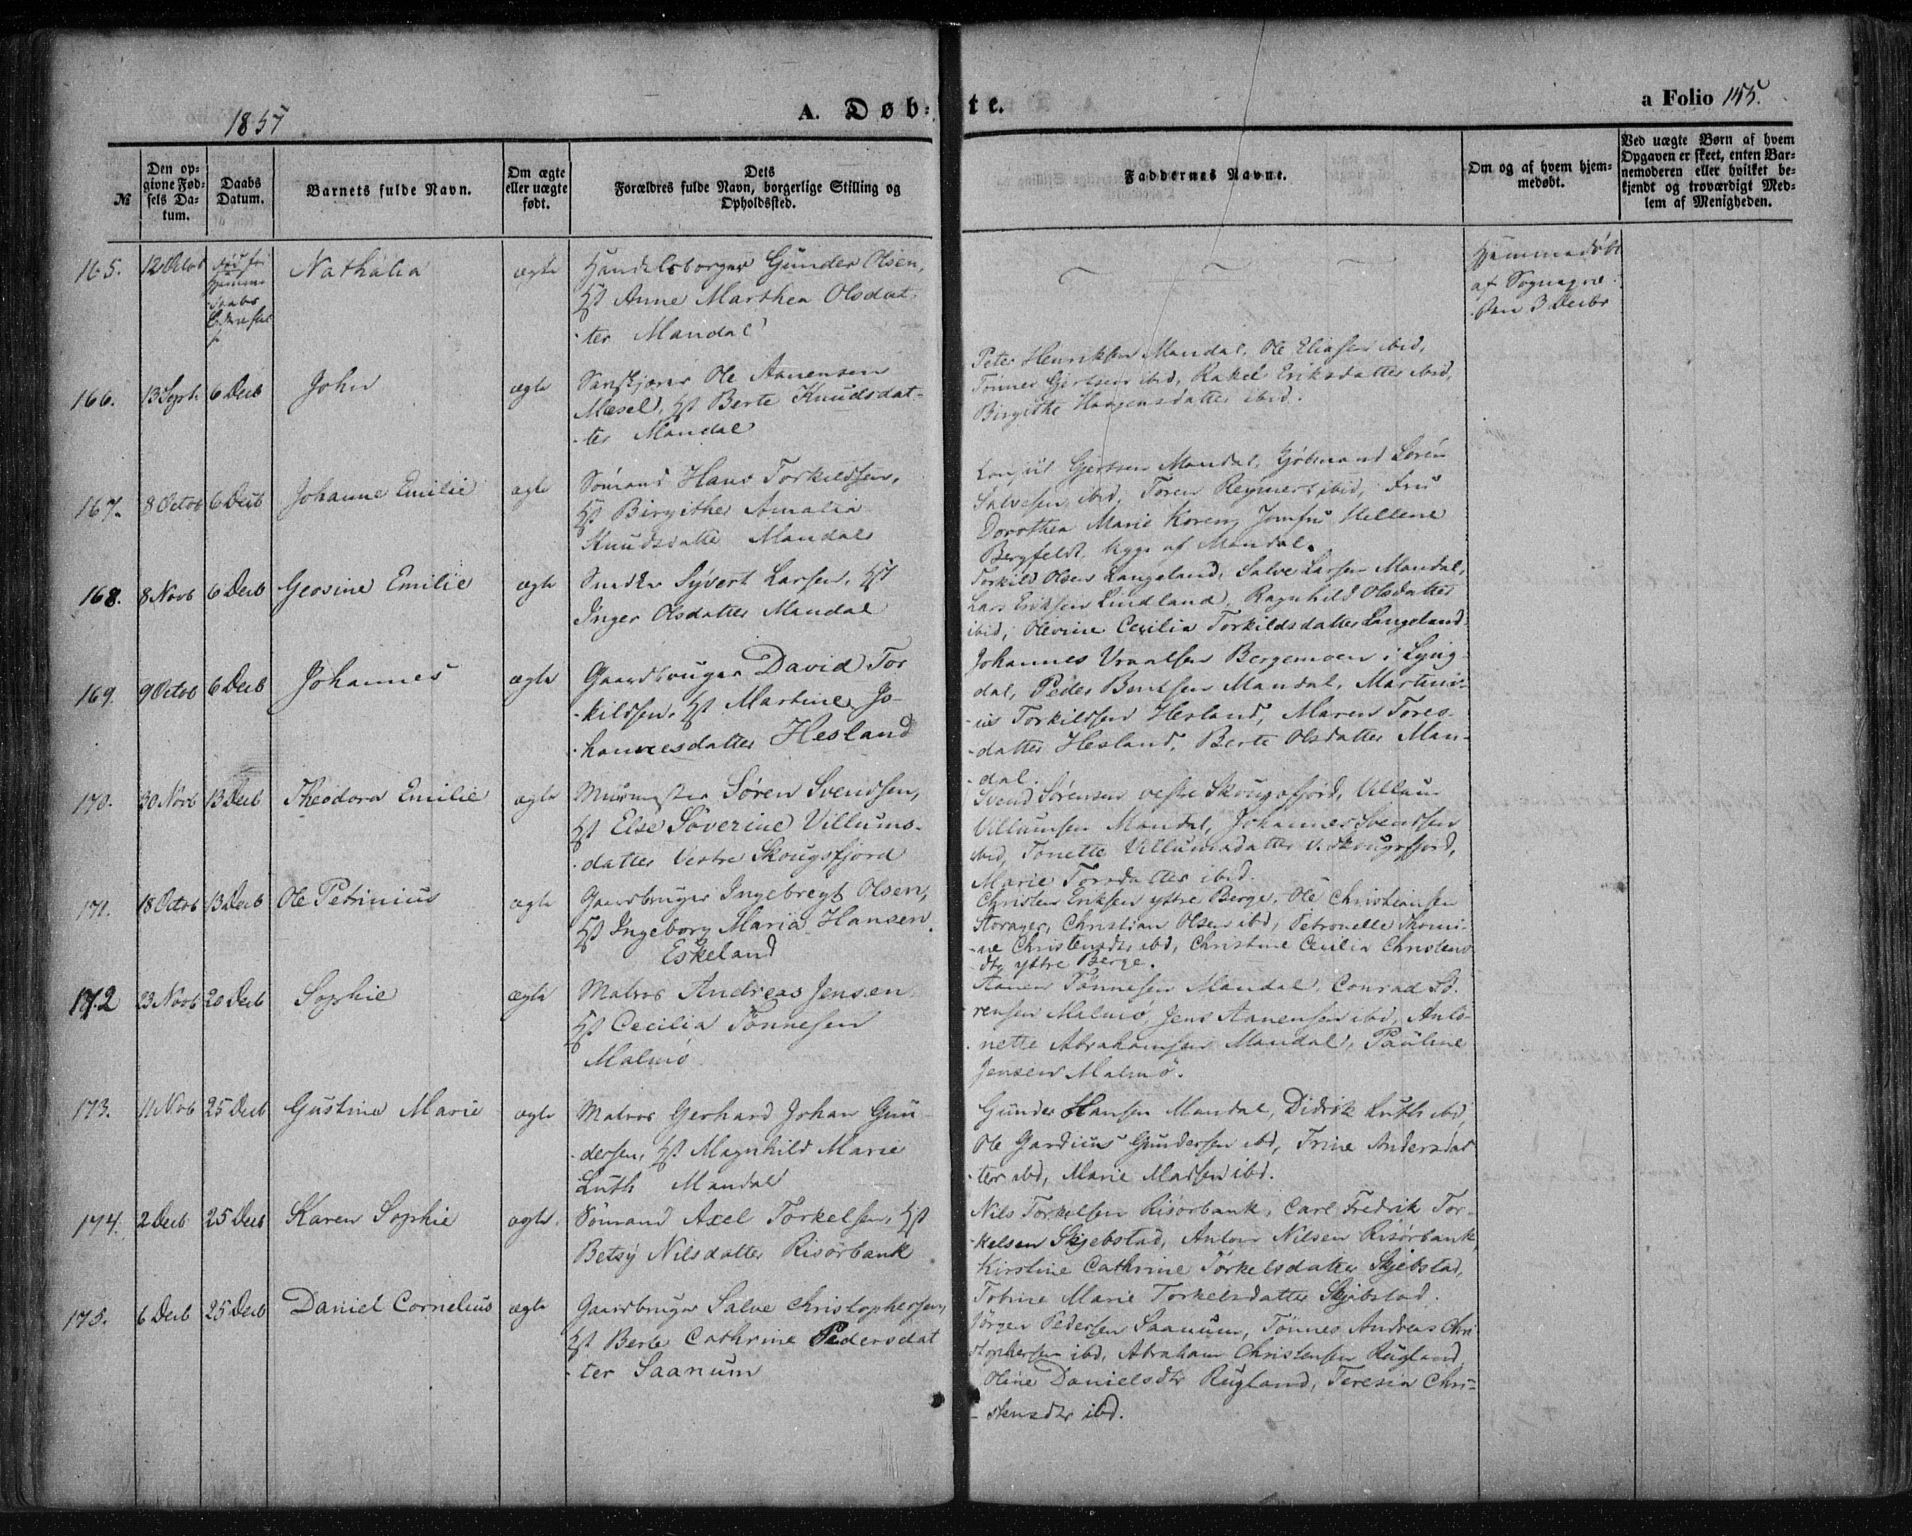 1857
A. Døb-
te.
a Folio 155.
№
Den op-
givne Fød-
sels Da-
tum.
Daabs
Datum.
Barnets fulde Navn.
Om ægte
eller uægte
født.
Dets
Forældres fulde Navn, borgerlige Stilling og
Opholdssted.
Faddernes Navne.
Om og af hvem hjem-
medøbt.
Ved uægte Børn af hvem
Opgaven er skeet, enten Bar-
nemoderen eller hvilket be-
kjendt og troværdigt Med-
lem af Menigheden.
165. 12 Octob
Nathalia
ægte
Handelsborger Gunder Olsen,
Hst Anne Marthea Olsdat-
-ter Mandal
Hjemmedøbt
af Sognepr.
den 3 Decbr
166. 13 Sept. 6 Decb John ægte
Ole Aanensen
Mæsel, Hst Berte Knudsdat-
-ter Mandal
Peter Henriksen Mandal, Ole Eliasen ibid,
Tønnes Gjertsen ibid, Rakel Eriksdatter ibid,
Birgithe Haagensdatter ibid.
167. 8 Octob 6 Decb Johanne Emilie ægte
Sømand Hans Torkildsen,
Hst Birgithe Amalia
Knudsdatter Mandal
Consul Gjertsen Mandal, Søren
Salvesen ibid, Toren Reymert ibid, Fru
Dorothea Marie Koren, Jomfru Hellene
Bergfeldt, af Mandal.
168. 8 Novb 6 Decb Geosine Emilie ægte
Snedker Syvert Larsen, Hst
Inger Olsdatter Mandal
Torkild Olsen Langeland, Salve Larsen Mandal,
Lars Eriksen Lindland, Ragnhild Olsdatter
ibid, Olevine Cecilia Torkildsdatter Langeland.
169. 9 Octob 6 Decb Johannes ægte
Gaardbruger David Tor
-kildsen, Hst Martine Jo-
-hannesdatter Hesland
Johannes Vraalsen Bergemoen i Lyng-
dal, Peder Bentsen Mandal, Martini-
-us Torkildsen Hesland, Maren Tores-
-datter Hesland, Berte Olsdatter Man-
-dal.
170. 30 Novb 13 Decb Theodora Emilie ægte
Muurmester Søren Svendsen,
Hst Else Søverine Villums-
-datter Vestre Skougsfjord
Svend Sørensen vestre Skougsfjord, Villum
Villumsen Mandal, Johannes Svendsen
ibid, Tonette Villumsdatter V. Skougsfjord,
Marie Torsdatter ibid.
171. 18 Octob 13 Decb Ole Petrinius ægte
Gaardbruger Ingebregt Olsen,
Hst Ingeborg Maria Hansen
Eskeland
Christen Eriksen yttre Berge, Ole Christiansen
Storager, Christian Olsen ibd, Petronelle Thomi-
-ne Christensdtr ibd, Christine Cecilia Christens
-dtr yttre Berge.
172 23 Novb 20 Decb Sophie ægte
Matros Andreas Jensen
Hst Cecilia Tønnesen
Malmø
Aanen Tønnesen Mandal, Conrad Sø-
rensen Malmø, Jens Aanensen ibid, Anto-
nette Abrahamsen Mandal, Pauline
Jensen Malmø.
173. 11 Novb 25 Decb Gustine Marie ægte
Matros Gerhard Johan Gun-
-dersen, Hst Magnhild Marie
Luth Mandal
Gunder Hansen Mandal, Didrik Luth ibd
Ole Gardius Gundersen ibd, Trine Andersdat
-ter ibd, Marie Madsen ibd.
174. 2 Decb 25 Decb Karen Sophie ægte.
Sømand Axel Torkelsen, Hst
Betsy Nilsdatter Risørbank
Nils Torkelsen Risørbank, Carl Fredrik Tor-
-kelsen Skjebstad, Anton Nilsen Risørbank,
Kirstine Cathrine Torkelsdatter Skjebstad,
Tobine Marie Torkelsdatter Skjebstad.
175. 6 Decb 25 Decb Daniel Cornelius ægte
Gaardbruger Salve Christophersen,
Hst Berte Cathrine Pedersdat
-ter Saanum
Jørgen Pedersen Saanum, Tønnes Andreas Chri
stophersen ibd, Abraham Christensen Rugland,
Oline Danielsdtr Rugland, Teresia Chri-
-stensdtr ibd.